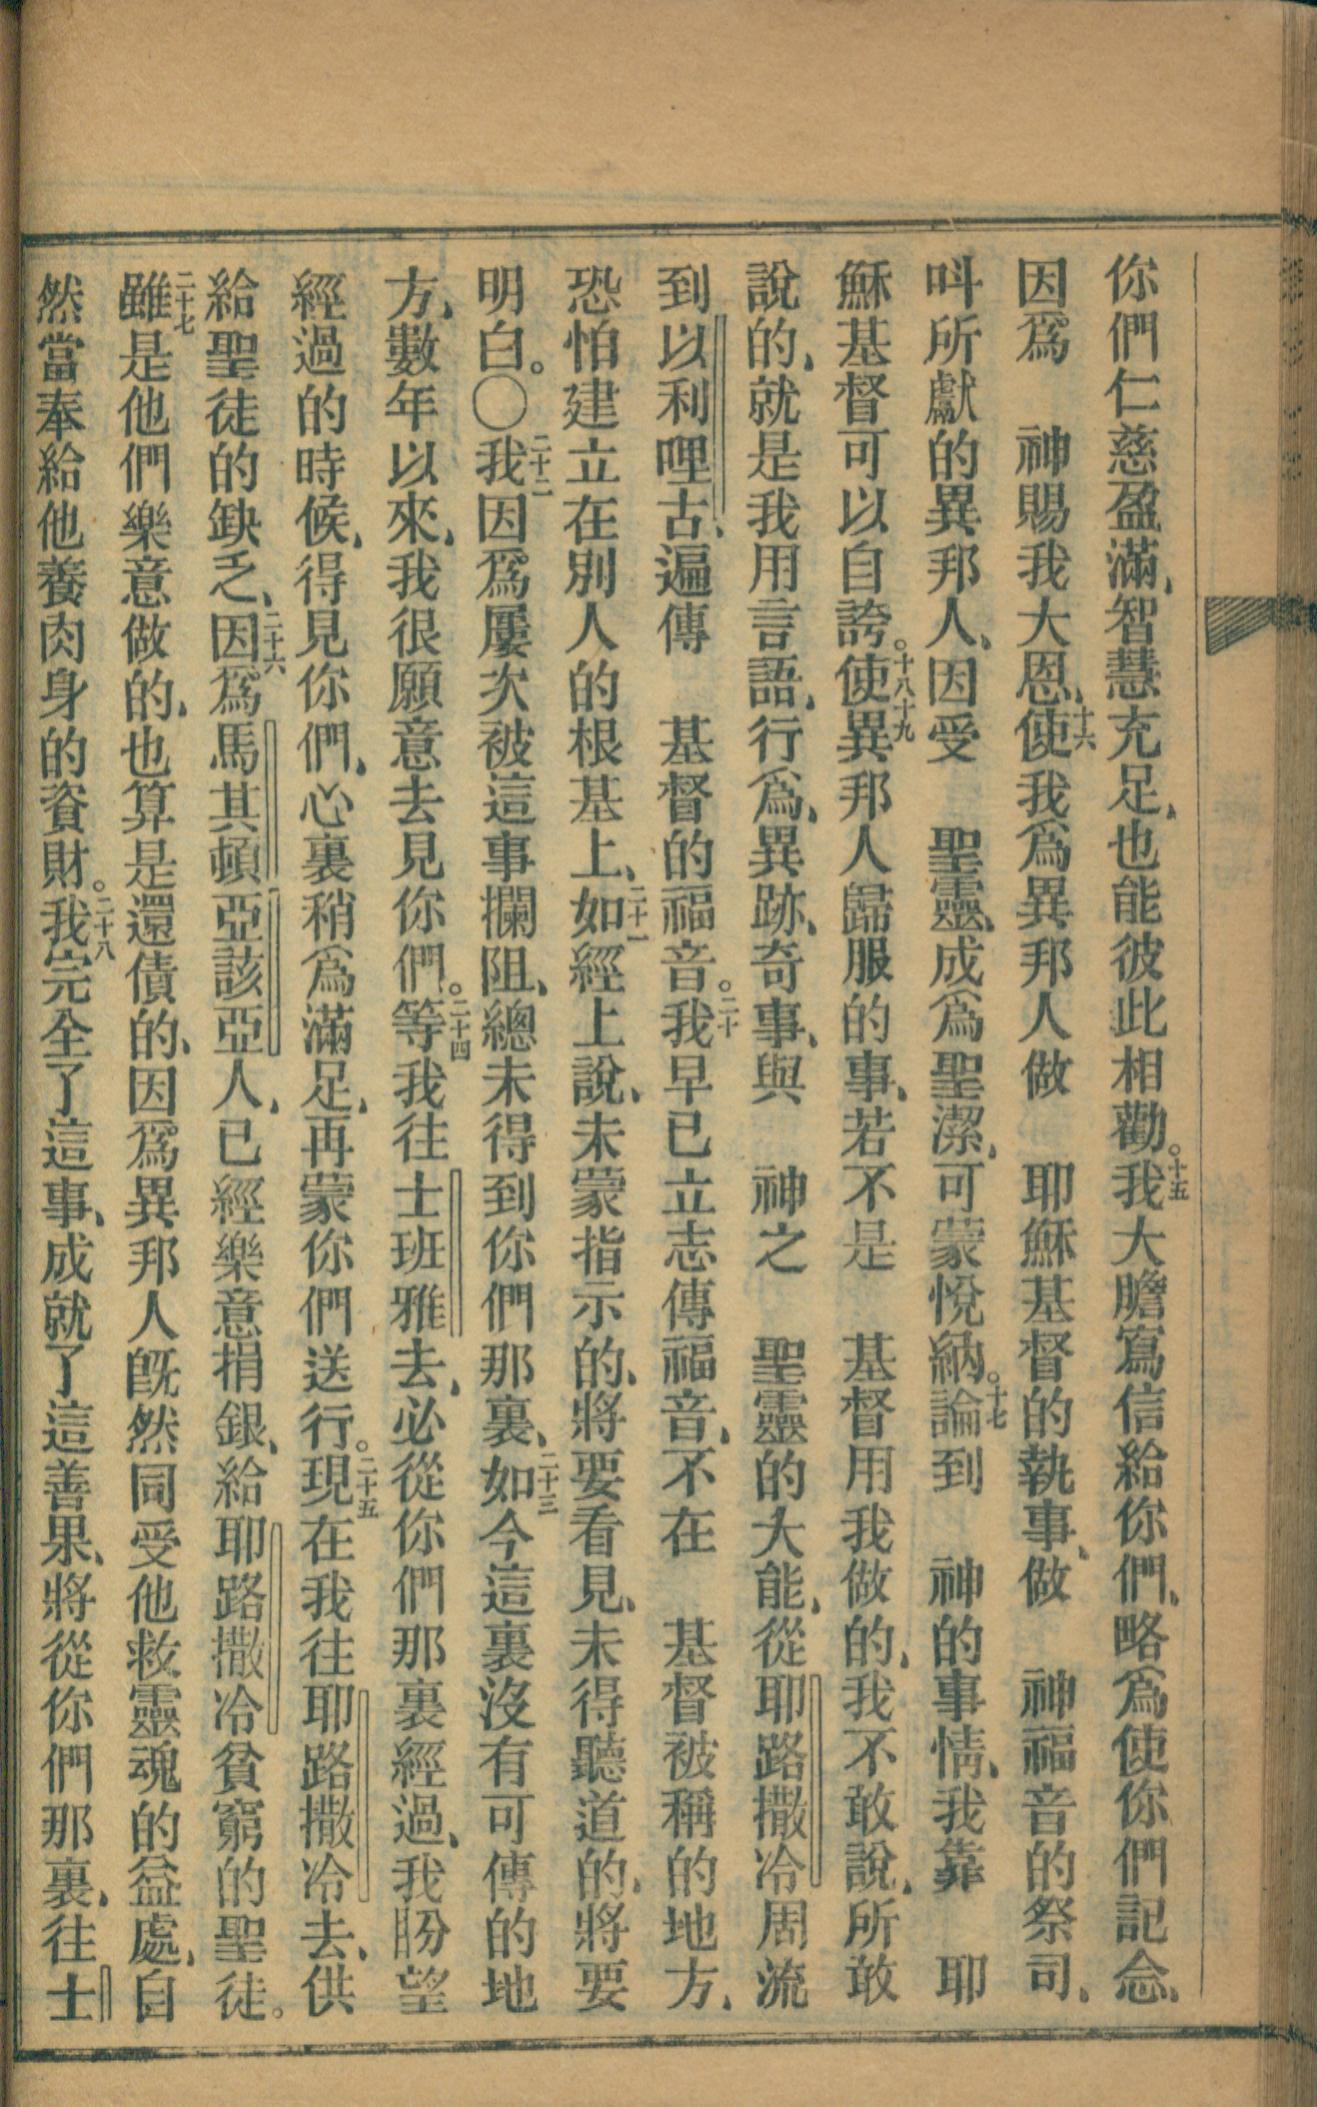 你們仁慈盈滿、智慧充足、也能彼此相勸。十五我大膽寫信給你們、略爲使你們記念、
因爲　神賜我大恩、十六使我爲異邦人做　耶穌基督的執事、做　神福音的祭司、
呌所獻的異邦人、因受　聖靈、成爲聖潔、可蒙悅納。十七論到　神的事情、我靠　耶
穌基督可以自誇。十八十九使異邦人歸服的事、若不是　基督用我做的、我不敢說、所敢
說的、就是我用言語、行爲、異跡、奇事、與　神之　聖靈的大能、從耶路撒冷周流
到以利哩古、遍傳　基督的福音。二十我早已立志傳福音、不在　基督被稱的地方、
恐怕建立在別人的根基上、二十一如經上說、未蒙指示的、將要看見、未得聽道的、將要
明白。○二十二我因爲屢次被這事攔阻、總未得到你們那裏、二十三如今這裏沒有可傳的地
方、數年以來、我很願意去見你們。二十四等我往士班雅去、必從你們那裏經過、我盼望
經過的時候、得見你們、心裏稍爲滿足、再蒙你們送行。二十五現在我往耶路撒冷去、供
給聖徒的缺乏、二十六因爲馬其頓亞該亞人、已經樂意捐銀、給耶路撒冷貧窮的聖徒。
二十七雖是他們樂意做的、也算是還債的、因爲異邦人旣然同受他救靈魂的益處、自
然當奉給他養肉身的資財。二十八我完全了這事、成就了這善果、將從你們那裏、往士